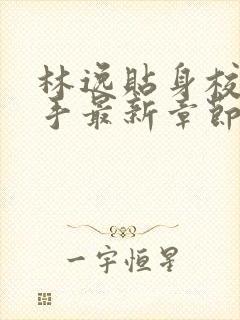 林逸貼身校
手最新章節
一宇恒星